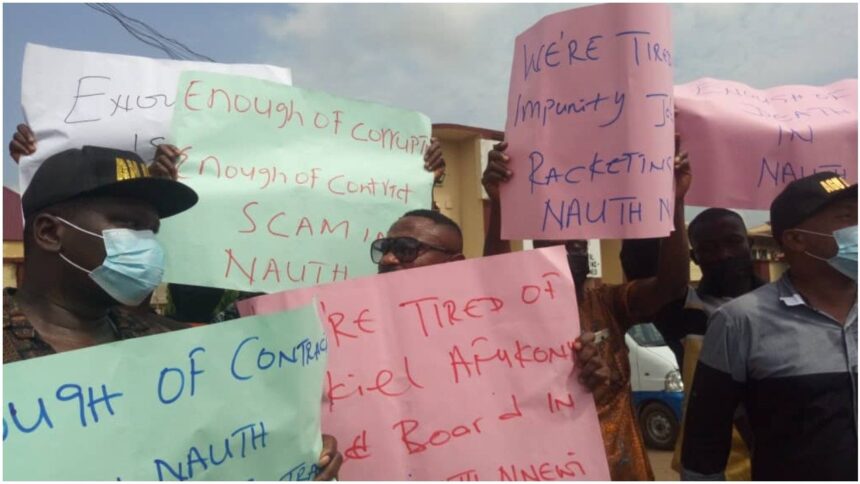 Enough of Corrupti
Enough of Contrict
SCAM in
NAUTH
We're Tired
Impunity Jo
Racketing
NAUTH N
Enough of
Death
in
NAUTH
're Tired of
kiel Afukon
Board in
Nnewi
ough of Contrac
NAUTH